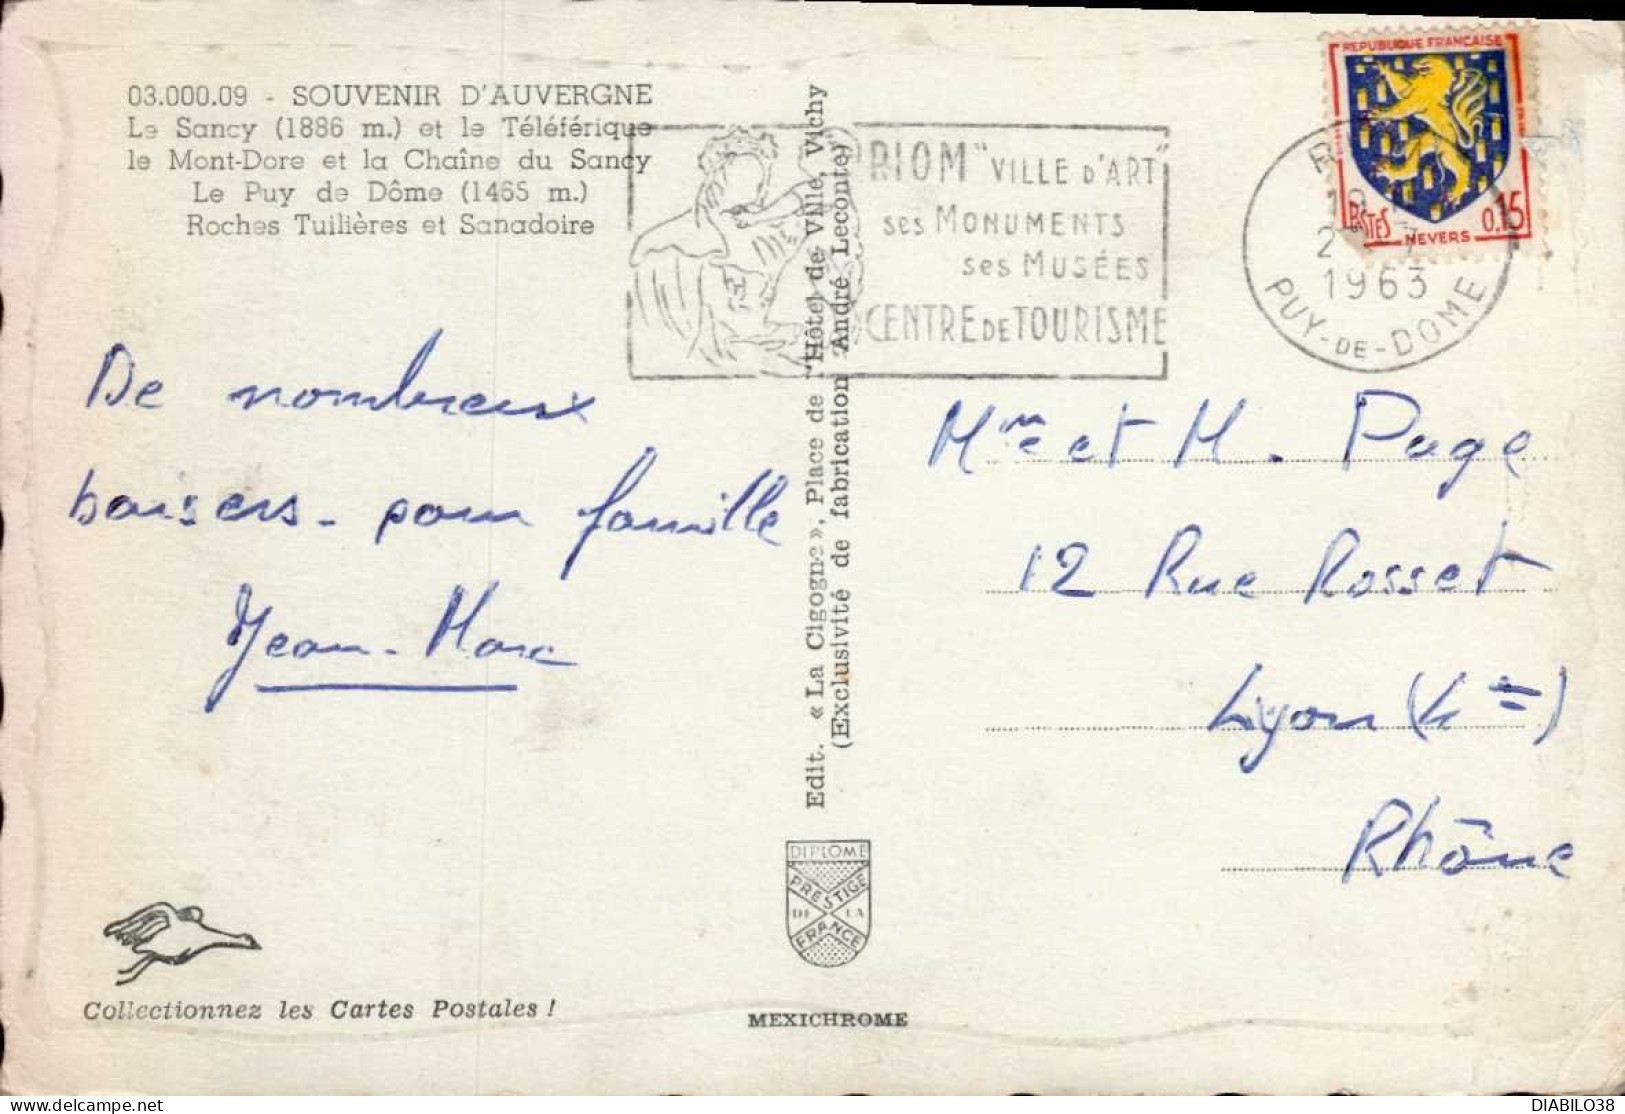 03.000.09 - SOUVENIR D'AUVERGNE
Le Sancy (1886 m.) et le Téléférique
le Mont-Dore et la Chaîne du Sancy
Le Puy de Dôme (1465 m.)
Roches Tuilières et Sanadoire
De nombreux
baisers - pour famille
Jean-Marc
Collectionnez les Cartes Postales !
Edit. « La Cigogne », Place de l'Hôtel de Ville, Vichy
(Exclusivité de fabrication André Leconte)
DIPLOME
PRESTIGE
DE LA
FRANCE
MEXICHROME
RIOM "VILLE D'ART"
ses MONUMENTS
ses MUSÉES
CENTRE DE TOURISME
1963
PUY-DE-DOME
REPUBLIQUE FRANÇAISE
POSTES
0,15
NEVERS
Mme et M. Page
12 Rue Rosset
Lyon (4e)
Rhône
DIABILO38